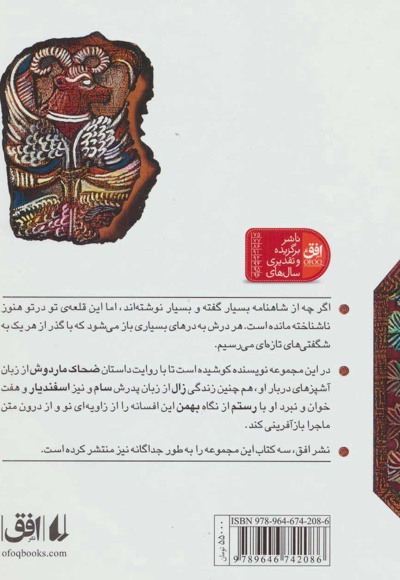 ناشر
برگزیده
و تقدیری
سال‌های
افق
OFOQ
اگر چه از شاهنامه بسیار گفته و بسیار نوشته‌اند، اما این قلعه‌ی تو در تو هنوز
ناشناخته مانده است. هر درش به درهای بسیاری باز می‌شود که با گذر از هر یک به
شگفتی‌های تازه‌ای می‌رسیم.
در این مجموعه نویسنده کوشیده است تا با روایت داستان ضحاک ماردوش از زبان
آشپزهای دربار او، هم چنین زندگی زال از زبان پدرش سام و نیز اسفندیار و هفت
خوان و نبرد او با رستم از نگاه بهمن این افسانه را از زاویه‌ای نو و از درون متن
ماجرا بازآفرینی کند.
نشر افق، سه کتاب این مجموعه را به طور جداگانه نیز منتشر کرده است.
نشر افق
ofoqbooks.com
۵۵۰۰۰ تومان
ISBN 978-964-674-208-6
9 789646 742086